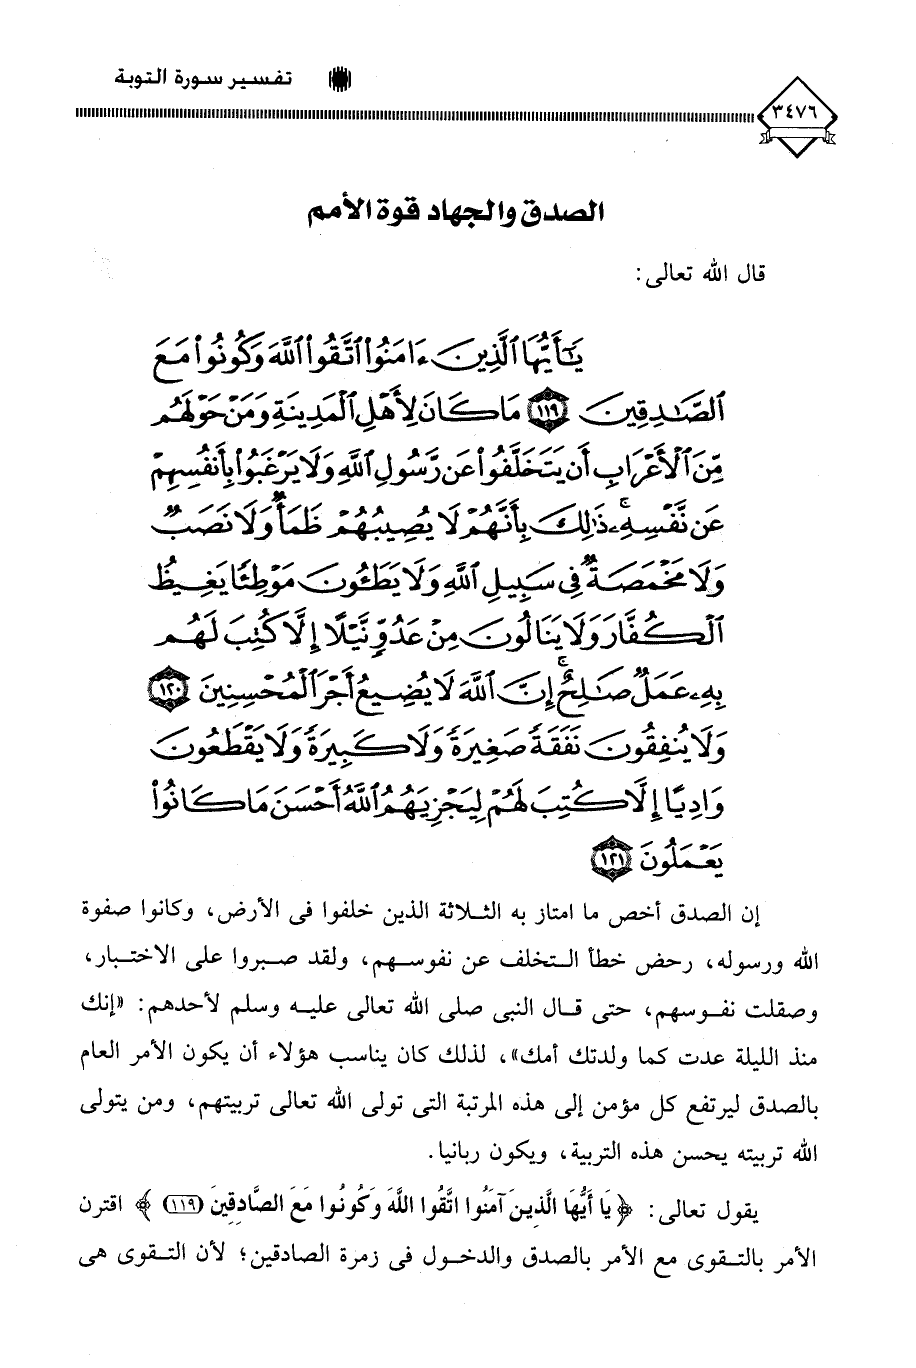 تفسير سورة التوبة
٣٤٧٦
الصدق والجهاد قوة الأمم
قال الله تعالى:
يَٰٓأَيُّهَا ٱلَّذِينَ ءَامَنُوا۟ ٱتَّقُوا۟ ٱللَّهَ وَكُونُوا۟ مَعَ
ٱلصَّٰدِقِينَ ١١٩ مَا كَانَ لِأَهْلِ ٱلْمَدِينَةِ وَمَنْ حَوْلَهُم
مِّنَ ٱلْأَعْرَابِ أَن يَتَخَلَّفُوا۟ عَن رَّسُولِ ٱللَّهِ وَلَا يَرْغَبُوا۟ بِأَنفُسِهِمْ
عَن نَّفْسِهِۦ ۚ ذَٰلِكَ بِأَنَّهُمْ لَا يُصِيبُهُمْ ظَمَأٌ وَلَا نَصَبٌ
وَلَا مَخْمَصَةٌ فِى سَبِيلِ ٱللَّهِ وَلَا يَطَـُٔونَ مَوْطِئًا يَغِيظُ
ٱلْكُفَّارَ وَلَا يَنَالُونَ مِنْ عَدُوٍّ نَّيْلًا إِلَّا كُتِبَ لَهُم
بِهِۦ عَمَلٌ صَٰلِحٌ ۚ إِنَّ ٱللَّهَ لَا يُضِيعُ أَجْرَ ٱلْمُحْسِنِينَ ١٢٠
وَلَا يُنفِقُونَ نَفَقَةً صَغِيرَةً وَلَا كَبِيرَةً وَلَا يَقْطَعُونَ
وَادِيًا إِلَّا كُتِبَ لَهُمْ لِيَجْزِيَهُمُ ٱللَّهُ أَحْسَنَ مَا كَانُوا۟
يَعْمَلُونَ ١٢١
إن الصدق أخص ما امتاز به الثلاثة الذين خلفوا فى الأرض، وكانوا صفوة
الله ورسوله، رحض خطأ التخلف عن نفوسهم، ولقد صبروا على الاختبار،
وصقلت نفوسهم، حتى قال النبى صلى الله تعالى عليه وسلم لأحدهم: «إنك
منذ الليلة عدت كما ولدتك أمك»، لذلك كان يناسب هؤلاء أن يكون الأمر العام
بالصدق ليرتفع كل مؤمن إلى هذه المرتبة التى تولى الله تعالى تربيتهم، ومن يتولى
الله تربيته يحسن هذه التربية، ويكون ربانيا.
يقول تعالى: ﴿يَا أَيُّهَا الَّذِينَ آمَنُوا اتَّقُوا اللَّهَ وَكُونُوا مَعَ الصَّادِقِينَ (١١٩)﴾ اقترن
الأمر بالتقوى مع الأمر بالصدق والدخول فى زمرة الصادقين؛ لأن التقوى هى